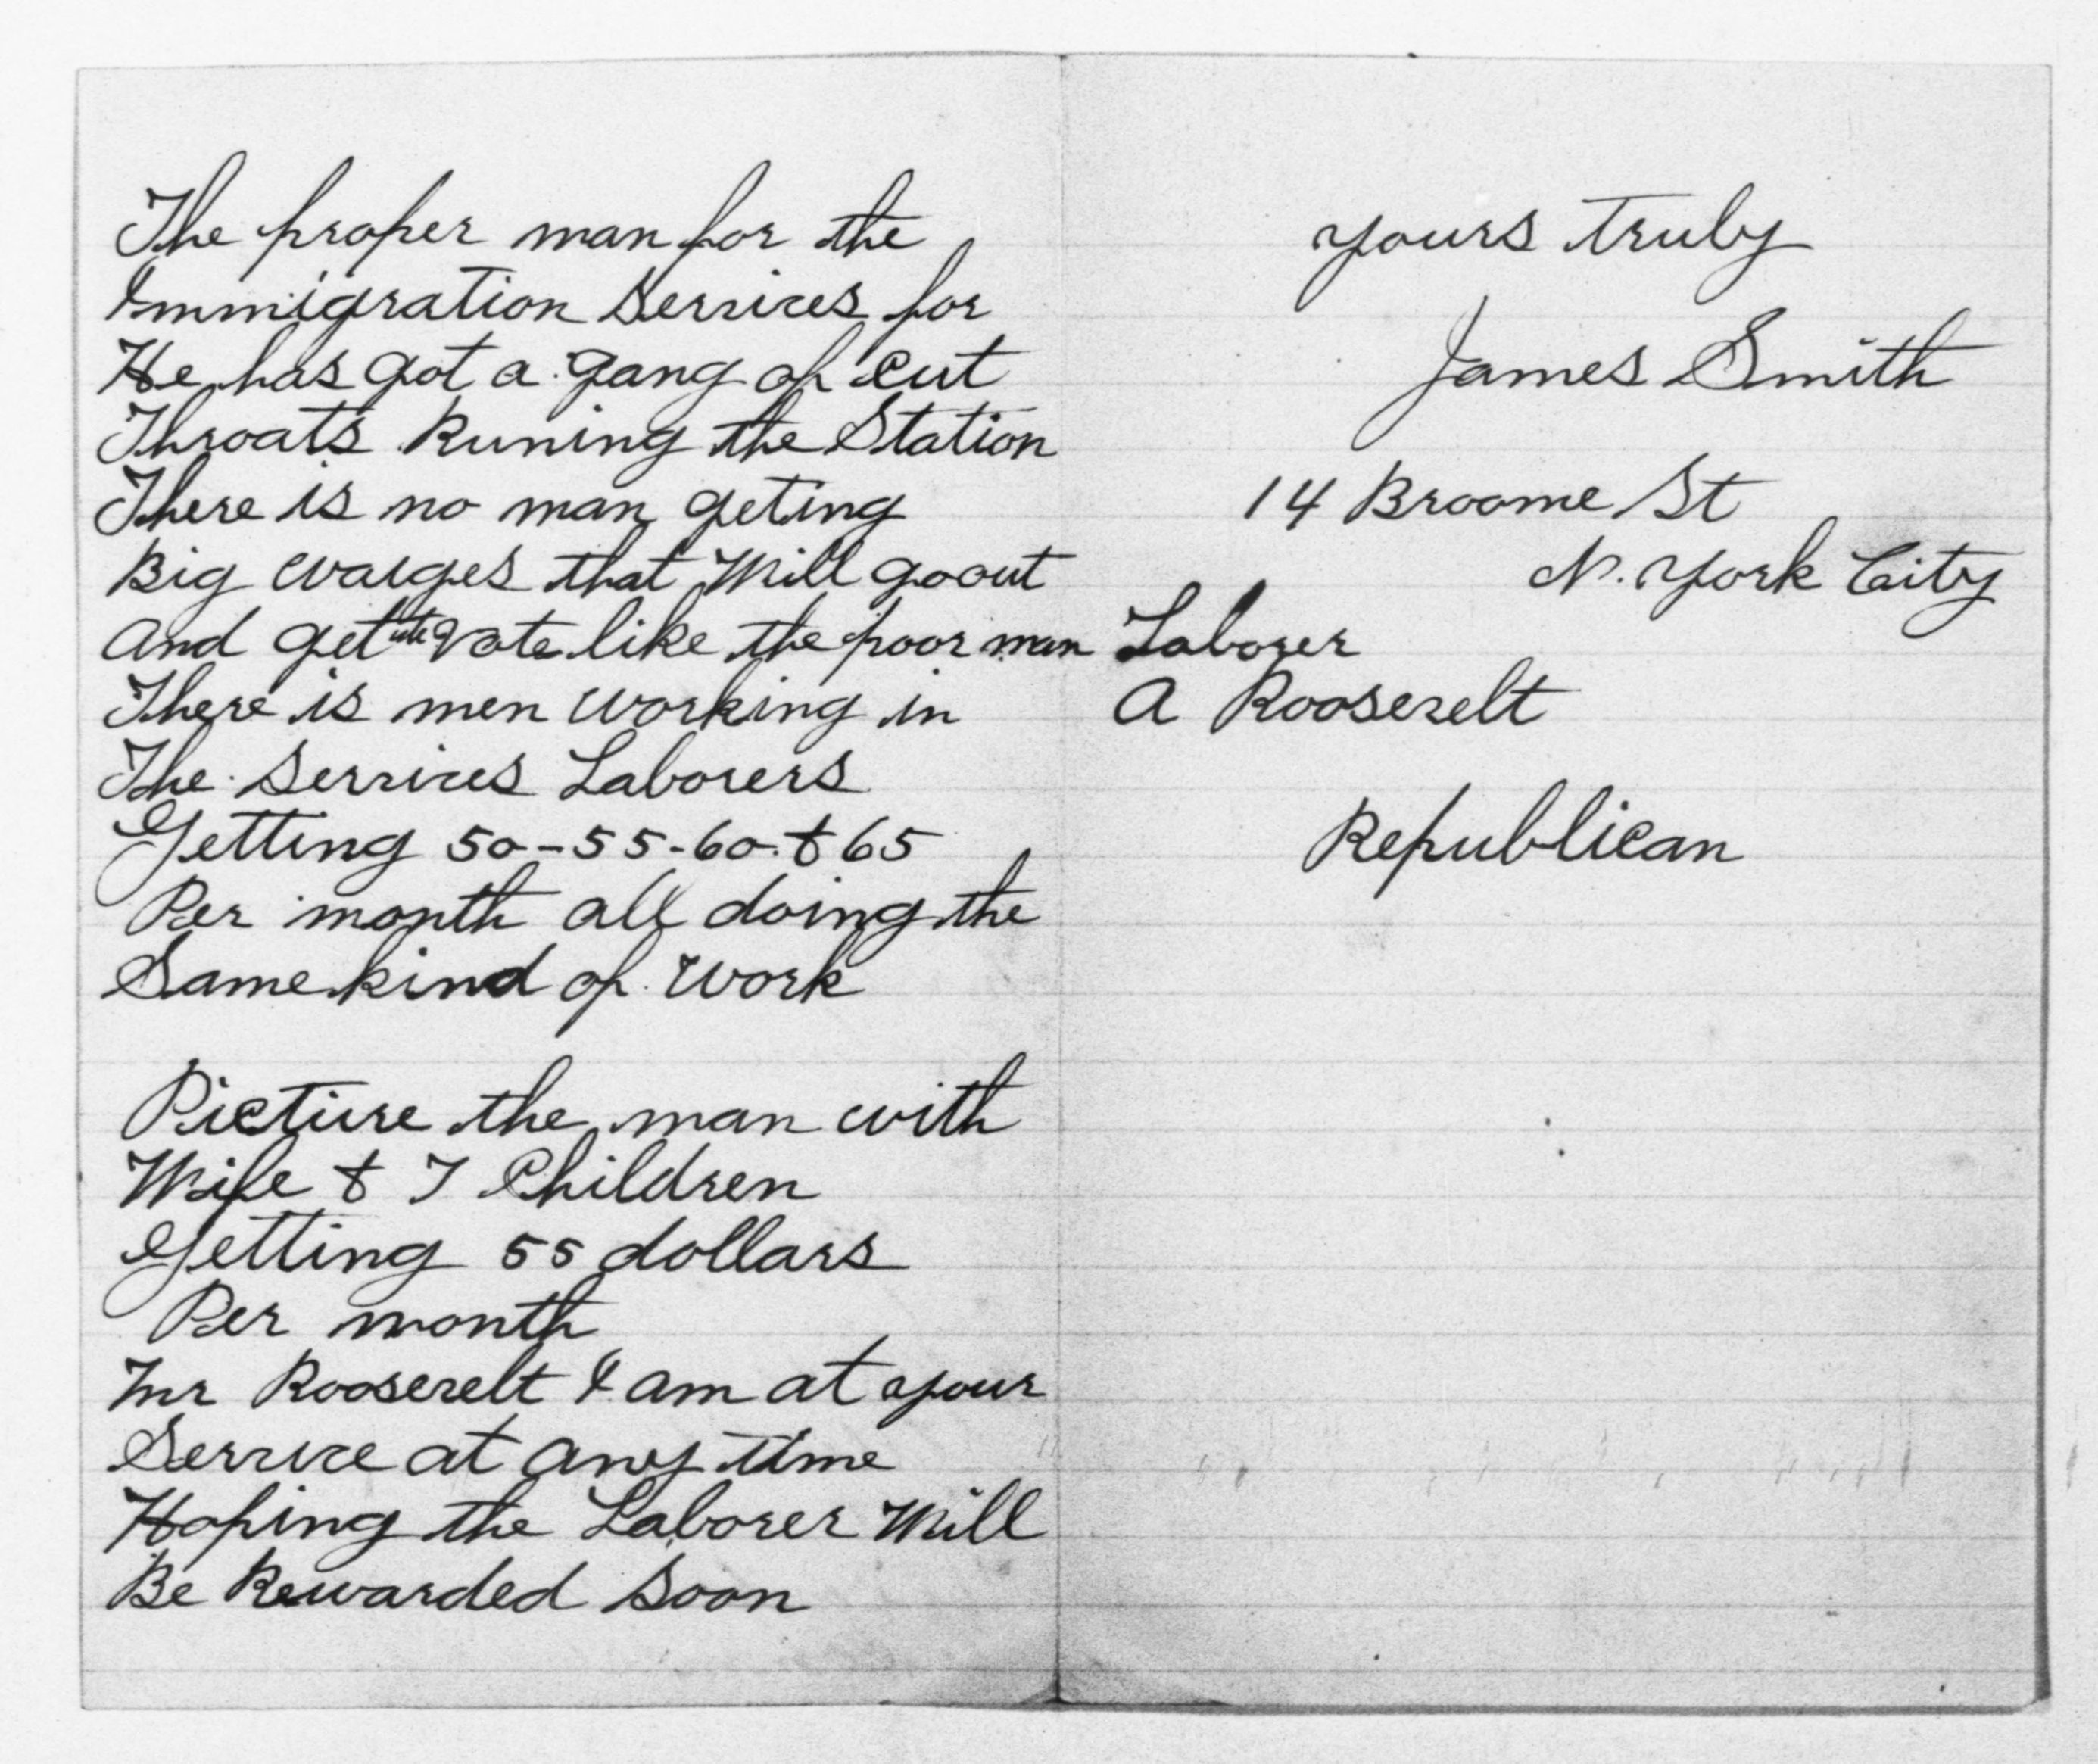 The proper man for the
Immigration Services for
He has got a gang of cut
Throats Runing the Station
There is no man geting
Big warges that Will go out
And get the Vote like the poor man
There is men working in
The Services Laborers
Getting 50-55-60 & 65
Per month all doing the
Same kind of Work
Picture the man with
Wife & 7 Children
Getting 55 dollars
Per month
Mr Roosevelt I am at your
Service at any time
Hoping the Laborer Will
Be Rewarded Soon
yours truly
James Smith
14 Broome St
N. York City
Laborer
A Roosevelt
Republican